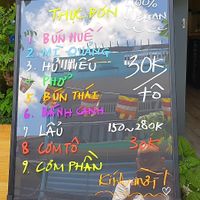 THỰC ĐƠN 100%
1. BÚN HUẾ
2. MÌ QUẢNG
3. HỦ TIẾU 30K
4. PHỞ
5. BÚN THÁI TÔ
6. BÁNH CANH
7 LẨU 150~280K
8 CƠM TÔ 30K
9. CƠM PHẦN
Kính mời!